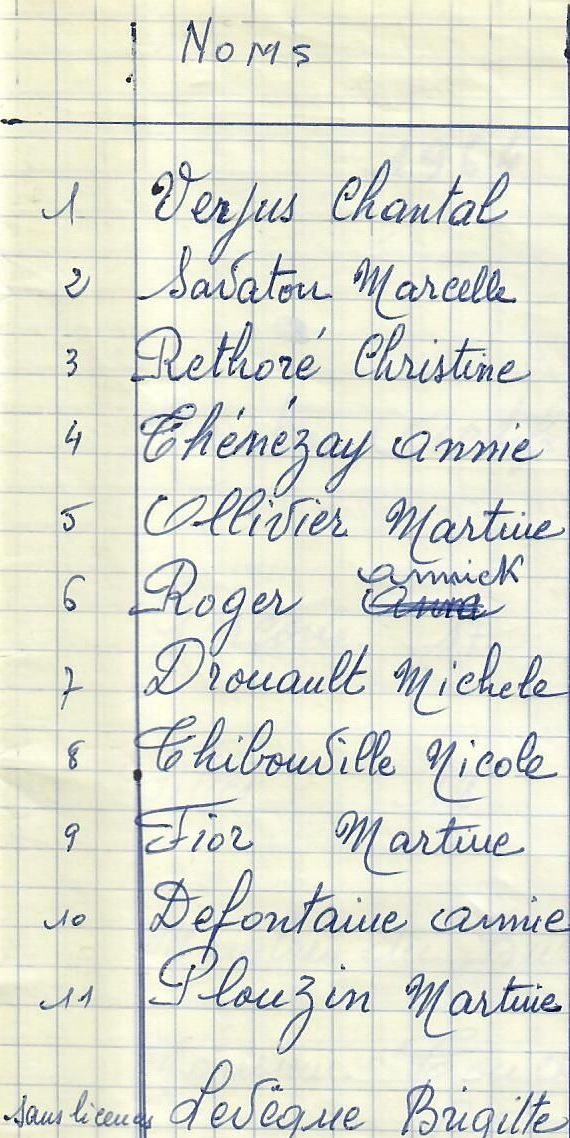 Noms
1 Verjus Chantal
2 Savaton Marcelle
3 Rethoré Christine
4 Thénézay annie
5 Ollivier Martine
6 Roger annick
7 Drouault Michele
8 Thibouville Nicole
9 Fior Martine
10 Defontaine annie
11 Plouzin Martine
sans licence Levêque Brigitte